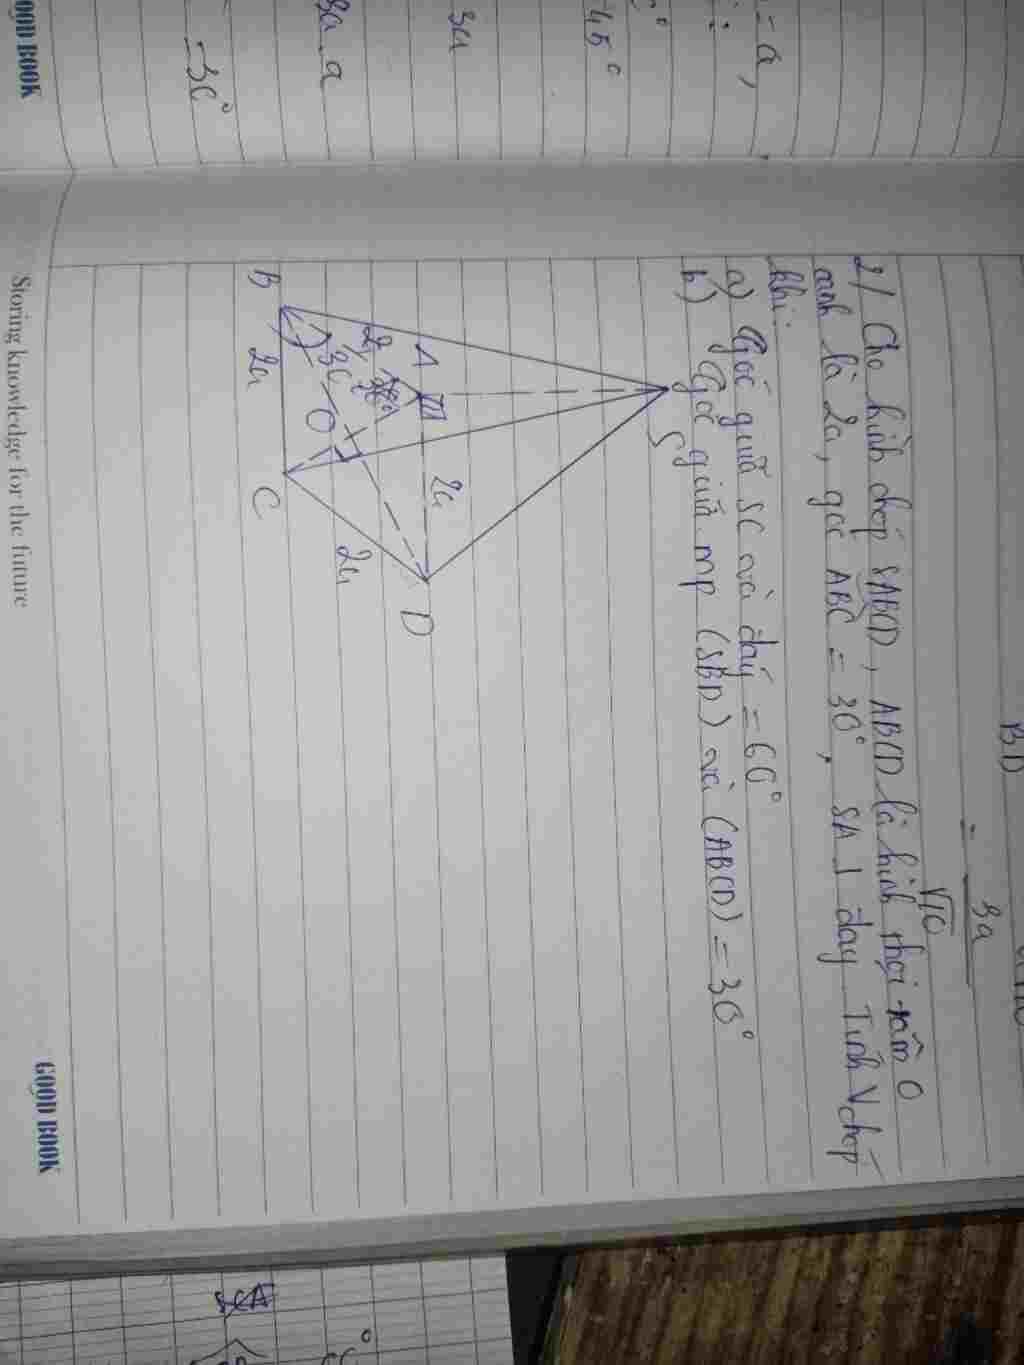 BD
3a
√10
2/ Cho hình chóp SABCD, ABCD là hình thoi tâm O
cạnh là 2a, góc ABC = 30°, SA ⊥ đáy. Tính V chóp
khi:
a) Góc giữa SC và đáy = 60°
b) Góc giữa mp (SBD) và (ABCD) = 30°
S
A
2a
D
2
30°
O
B
2a
C
2a
= a,
45°
3a
3a a
= 30°
GOOD BOOK
Storing knowledge for the future
GOOD BOOK